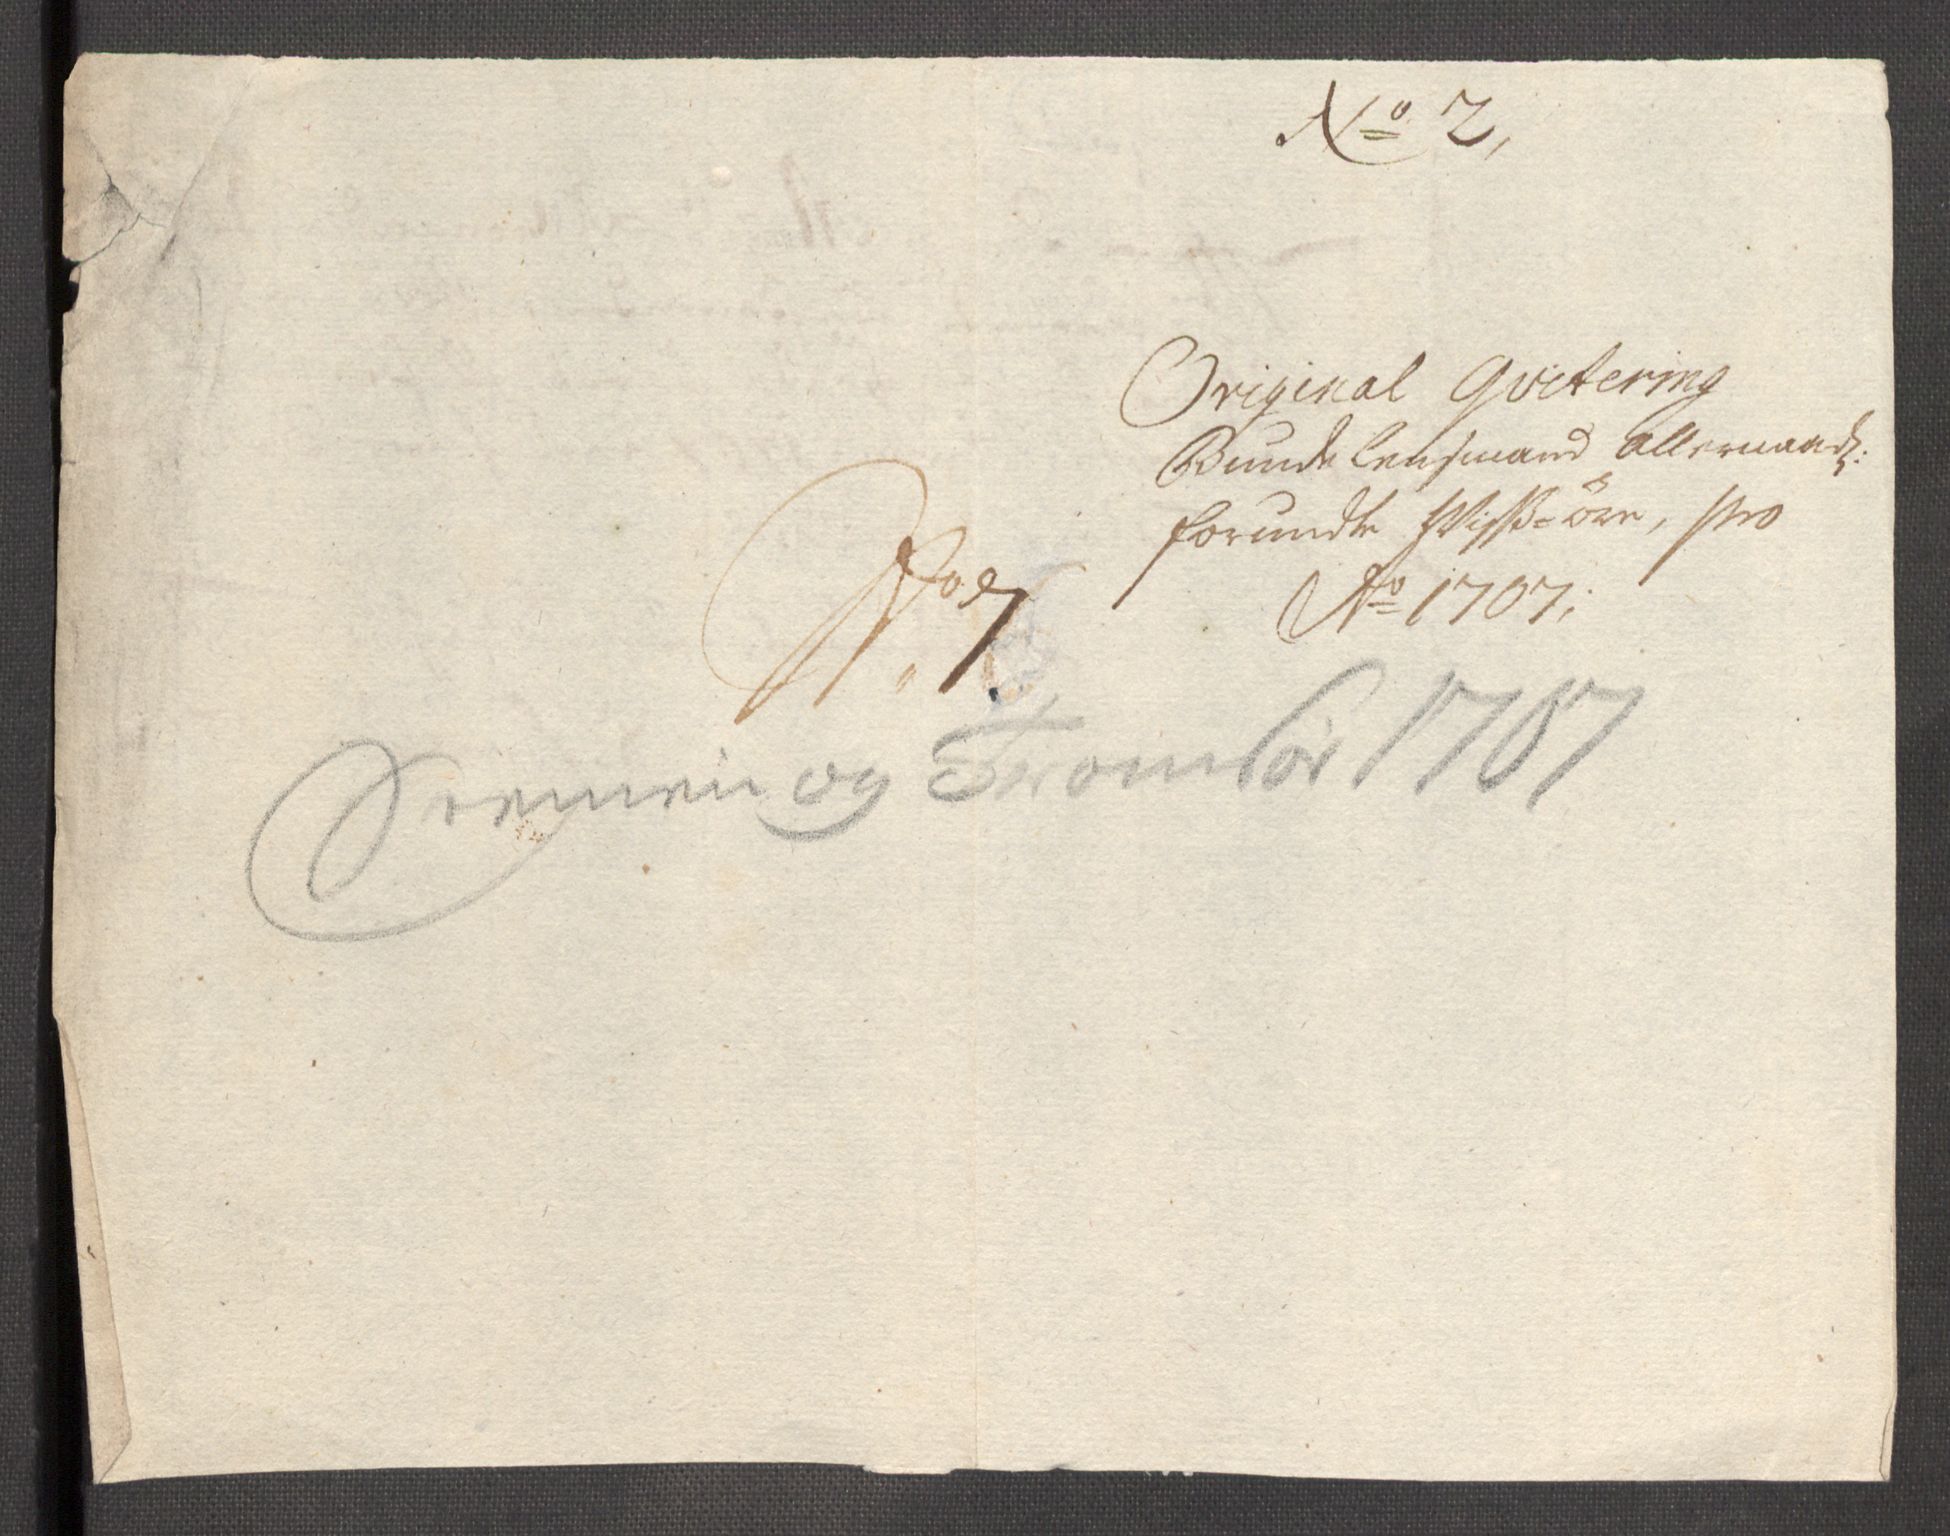 No 2,
Original Qvitering
Bunde Lensmand Allernaad:
forundte Wiss-öre, pro
Ao 1707;
No 7.
Senmen og Tromsør 1707